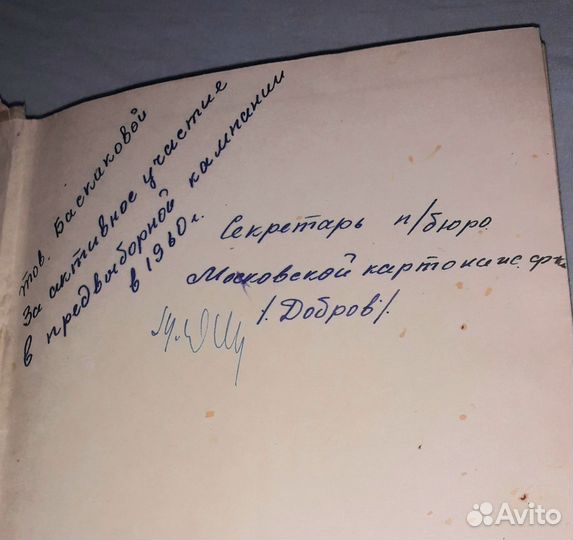 тов. Баскаковой
За активное участие
в предвыборной кампании
в 1960г.
Секретарь п/бюро
Московской картонной ф-ки
/. Добров /.
Avito